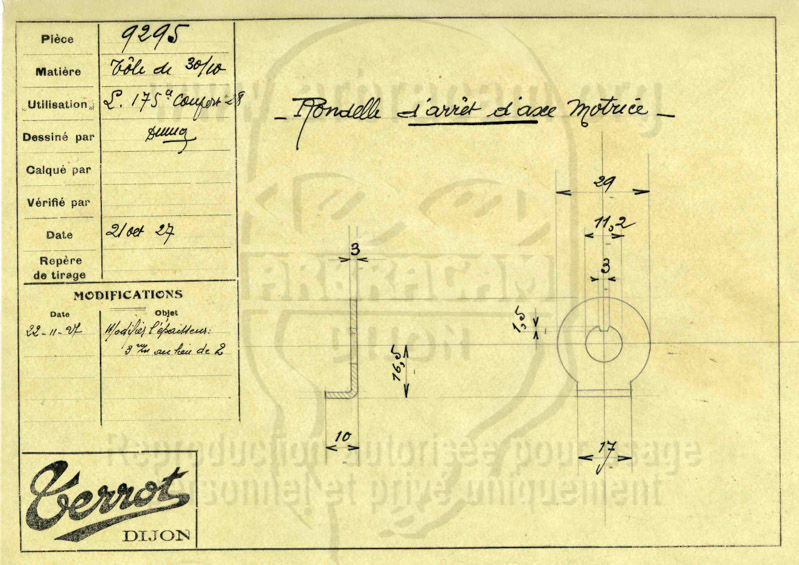 Pièce 9295
Matière Tôle de 30/10
Utilisation L. 175ᵉ Confort 28
Dessiné par
Calqué par
Vérifié par
Date 21 oct 27
Repère
de tirage
MODIFICATIONS
Date Objet
22-11-27 Modifier l'épaisseur:
3 m/m au lieu de 2
Terrot
DIJON
- Rondelle d'arrêt d'axe Motrice -
29
11,2
3
3
1,5
16,5
10
17
www.arbracam.org
ARBRACAM
DIJON
Reproduction autorisée pour usage
personnel et privé uniquement